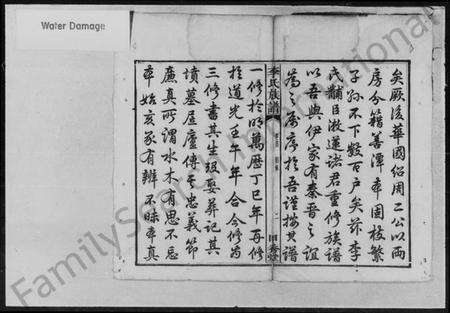 Water Damage
矣厥後華國紹周二公以兩
房分籍善潭本固枝繁
子孫不下數百戶矣茲李
氏黼臣漵蓮諸君重修族譜
以吾與伊家有秦晉之誼
為之屬序於吾謹按其譜
李氏族譜
一修於明萬歷丁巳年再修
於道光壬午年合今修為
三修書其生歿娶葬記其
墳墓居廬傳其忠義節
廉真所謂水木有思不忘
本始亥豕有辨不昧本真
FamilySearch International